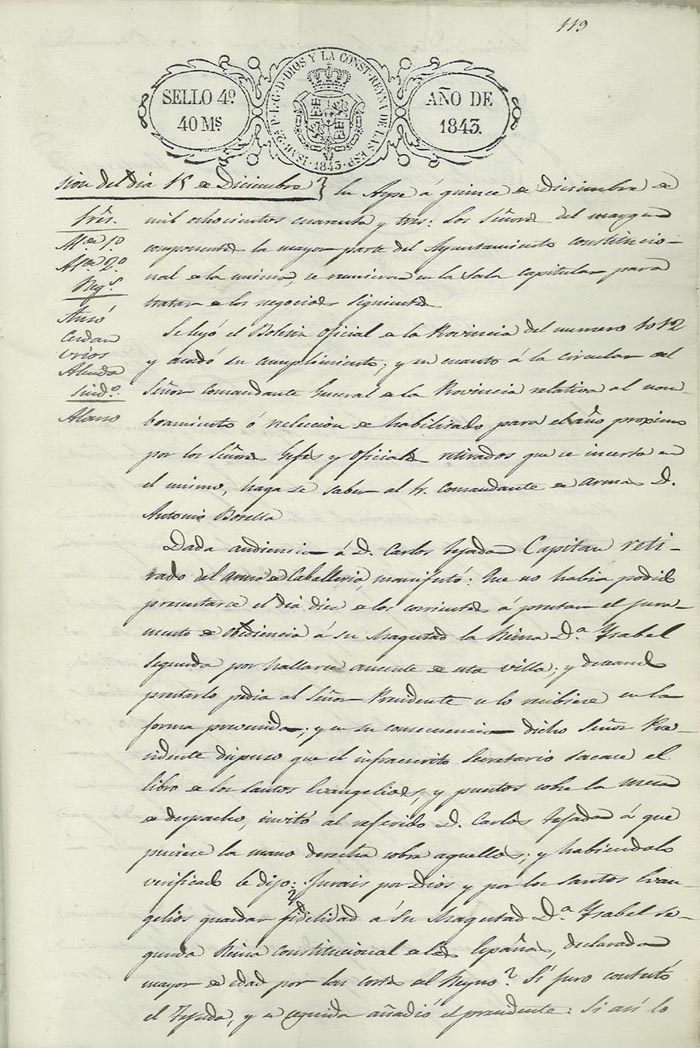 119
SELLO 4º
40 Ms
ISAB. 2ª P. L. G. D. DIOS Y LA CONST. REYNA DE LAS ESP.
1843
AÑO DE
1843.
del dia 15 de Diciembre
Sres.
Alce 1º
Alce 2º
Regs
Cerdan
Sindº
En Aspe á quince de Diciembre de
mil ochocientos cuarenta y tres: Los Señores del margen
componentes la mayor parte del Ayuntamiento constitucio-
nal de la misma, se reunieron en la Sala capitular para
tratar de los negocios siguientes
Se leyó el Boletin oficial de la Provincia del numero 1012
y acordó su cumplimiento; y en cuanto á la circular del
Señor Comandante General de la Provincia relativa al nom-
bramiento ó reeleccion de habilitado para el año proximo
por los Señores Gefes y Oficiales retirados que se inserta en
el mismo, haga se saber al Sr. Comandante de armas D.
Antonio
Dada audiencia á D. Carlos Tejada Capitan reti-
rado del Arma de Caballeria, manifestó: Que no habia podido
presentarse el dia diez de los corrientes á prestar el jura-
mento de obediencia á su Magestad la Reina Dª Ysabel
Segunda por hallarse ausente de esta villa; y deseando
prestarlo pedia al Señor Presidente se lo recibiese en la
forma prevenida; y en su consecuencia dicho Señor Pre-
sidente dispuso que el infrascrito Secretario sacase el
libro de los santos Evangelios, y puestos sobre la mesa
de despacho, invitó al referido D. Carlos Tejada á que
pusiese la mano derecha sobre aquellos; y habiendolo
verificado le dijo: Jurais por Dios y por los santos Evan-
gelios guardar fidelidad á Su Magestad Dª Ysabel se-
gunda Reina constitucional de las Españas, declarada
mayor de edad por las cortes del Reyno? Si juro contestó
el Tejada, y en seguida añadio el presidente: Si asi lo